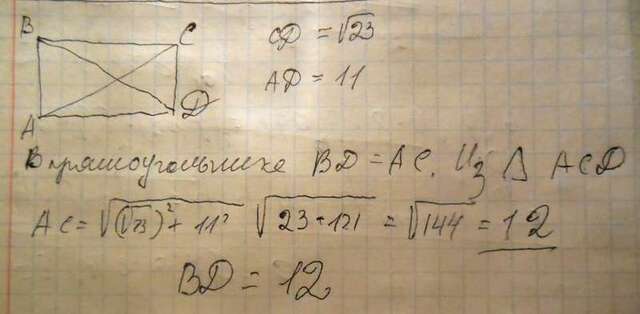 B C
A D
CD = √23
AD = 11
В прямоугольнике BD = AC. Из Δ ACD
AC = √(√23)² + 11² √23 + 121 = √144 = 12
BD = 12